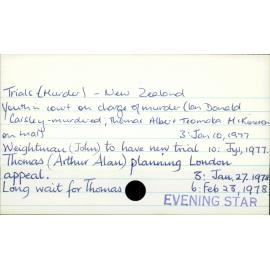 Trials (Murder) - New Zealand
Youth in court on charge of murder (Ian Donald
Carsley - murdered, Thomas Albert McKinnon
on trial) 3: Jan 10, 1977
Weightman (John) to have new trial 10: Jy1, 1977.
Thomas (Arthur Alan) planning London
appeal. 3: Jan. 27. 1978
Long wait for Thomas 6: Feb 28, 1978
EVENING STAR